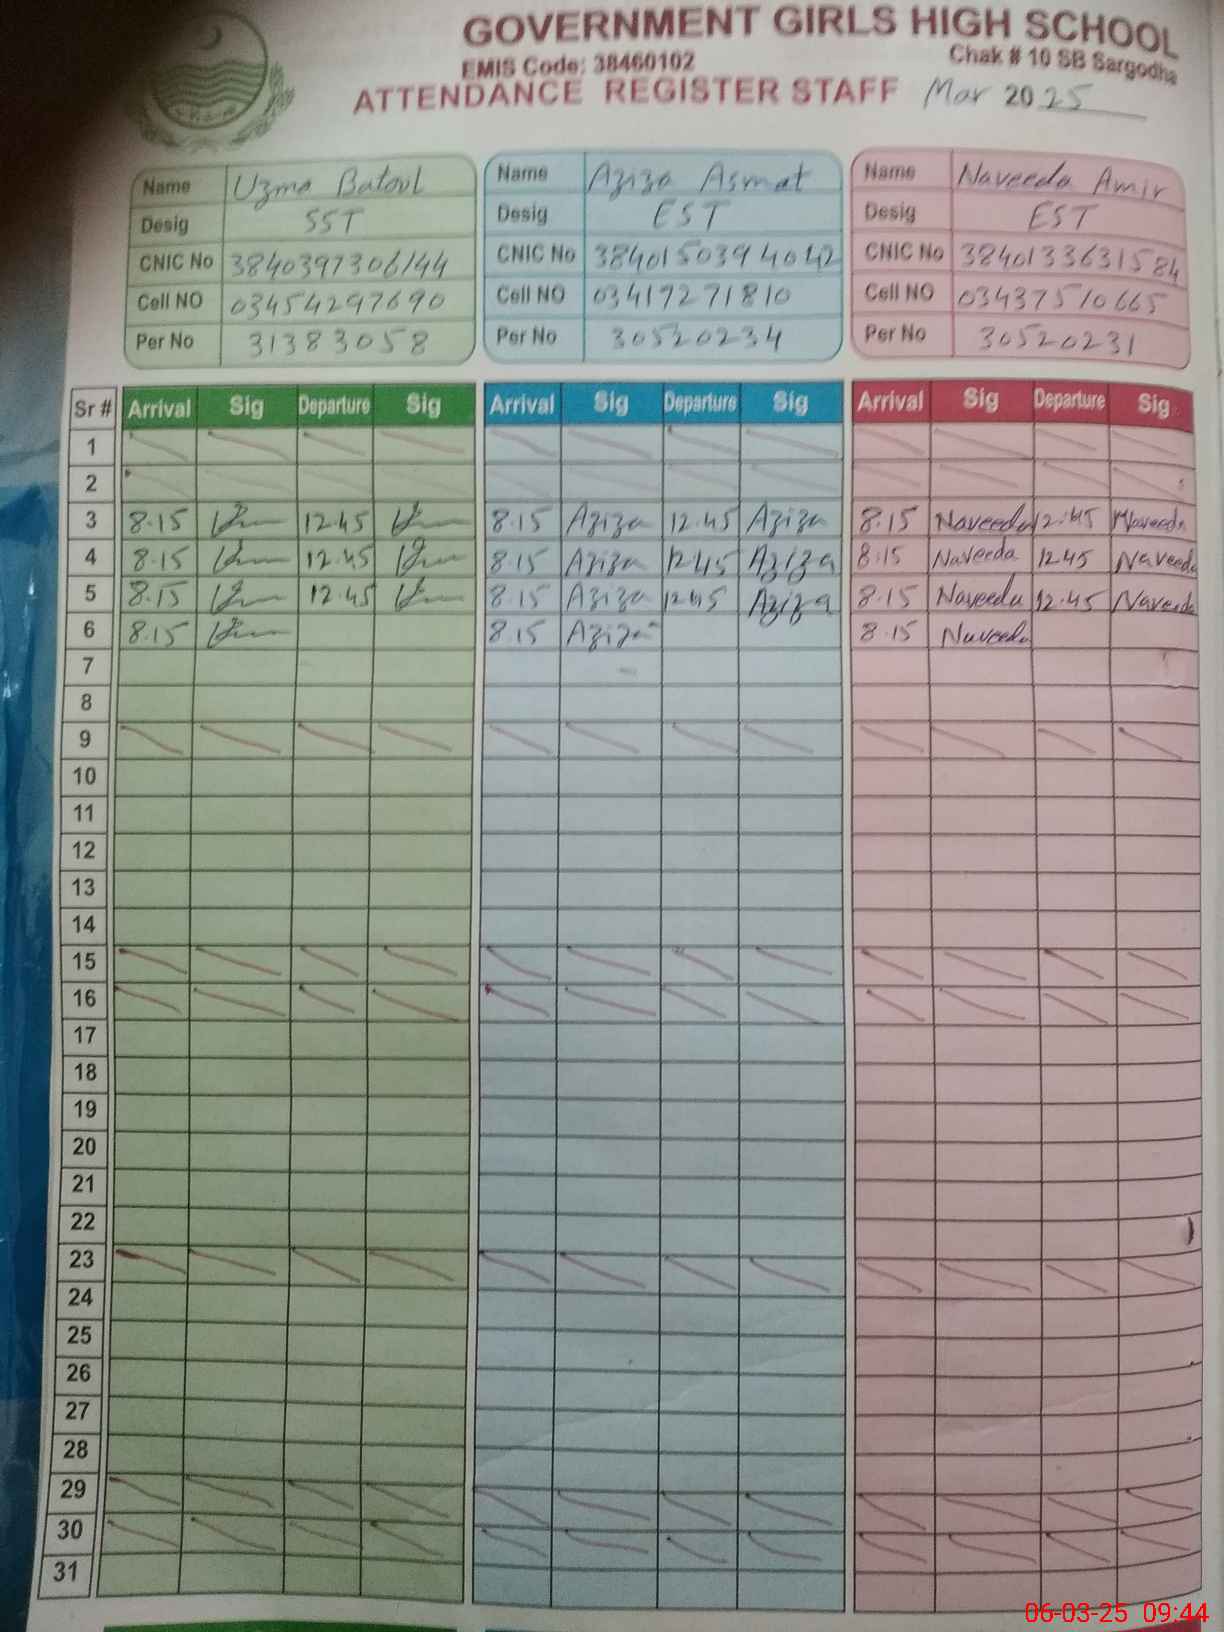 GOVERNMENT GIRLS HIGH SCHOOL
EMIS Code: 38460102 Chak # 10 SB Sargodha
ATTENDANCE REGISTER STAFF Mar 2025
Name Uzma Batool Name Aziza Asmat Name Naveeda Amir
Desig SST Desig EST Desig EST
CNIC No 3840397306144 CNIC No 3840150394042 CNIC No 3840133631584
Cell NO 03454297690 Cell NO 03417271810 Cell NO 03437510665
Per No 31383058 Per No 30520234 Per No 30520231
Sr # Arrival Sig Departure Sig Arrival Sig Departure Sig Arrival Sig Departure Sig
1
2
3 8.15 12.45 8.15 Aziza 12.45 Aziza 8.15 Naveeda 12.45 Naveeda
4 8.15 12.45 8.15 Aziza 12.45 Aziza 8.15 Naveeda 12.45 Naveeda
5 8.15 12.45 8.15 Aziza 12.45 Aziza 8.15 Naveeda 12.45 Naveeda
6 8.15 8.15 Aziza 8.15 Naveeda
7
8
9
10
11
12
13
14
15
16
17
18
19
20
21
22
23
24
25
26
27
28
29
30
31
06-03-25 09:44